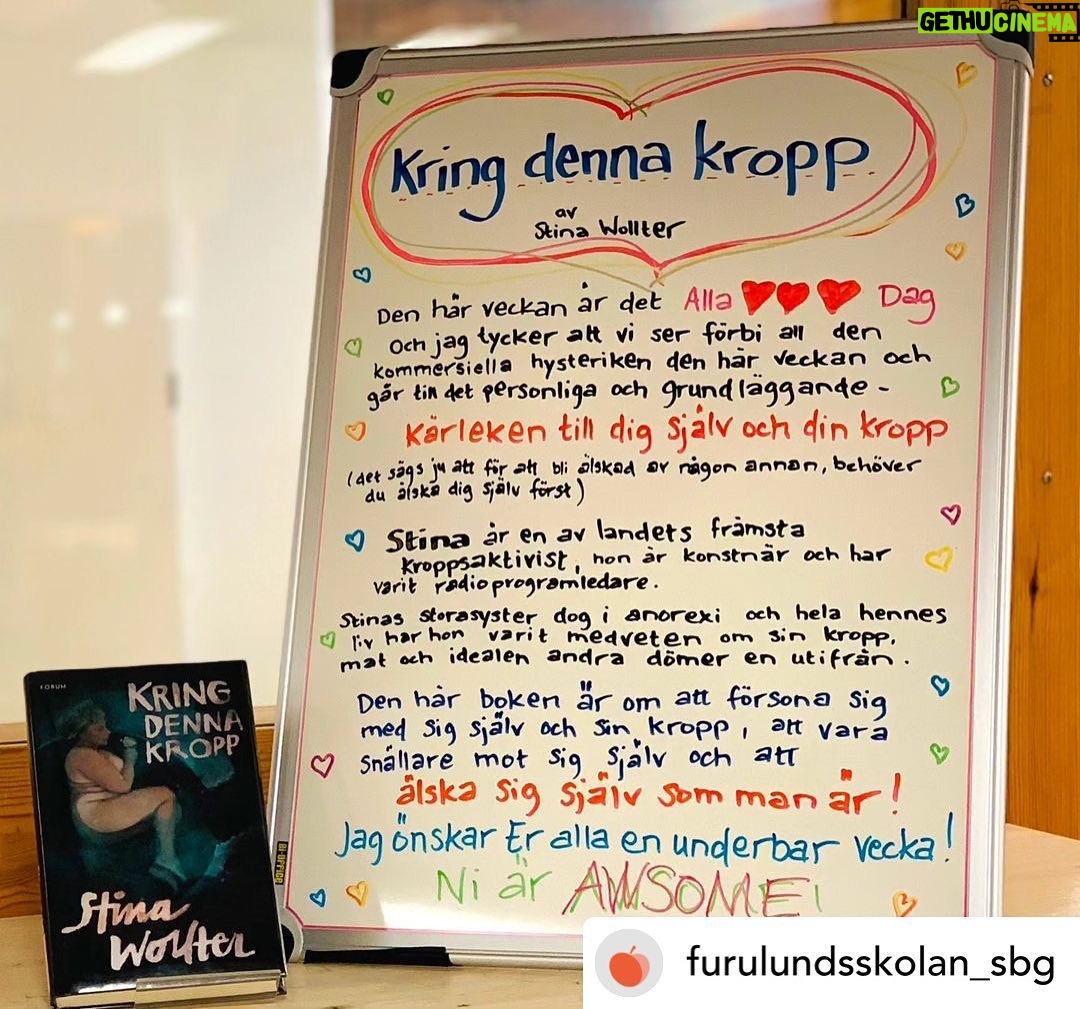 GETHUCINEMA
Kring denna kropp
av
Stina Wollter
Den här veckan är det Alla ❤❤❤ Dag
Och jag tycker att vi ser förbi all den
kommersiella hysteriken den här veckan och
går till det personliga och grundläggande -
Kärleken till dig själv och din kropp
(det sägs ju att för att bli älskad av någon annan, behöver
du älska dig själv först)
Stina är en av landets främsta
kroppsaktivist, hon är konstnär och har
varit radioprogramledare.
Stinas storasyster dog i anorexi och hela hennes
liv har hon varit medveten om sin kropp,
mat och idealen andra dömer en utifrån.
Den här boken är om att försona sig
med sig själv och sin kropp, att vara
snällare mot sig själv och att
älska sig själv som man är!
Jag önskar Er alla en underbar vecka!
Ni är AWSOME!
BI-OFFICE
FORUM
KRING
DENNA
KROPP
Stina
Wollter
furulundsskolan_sbg